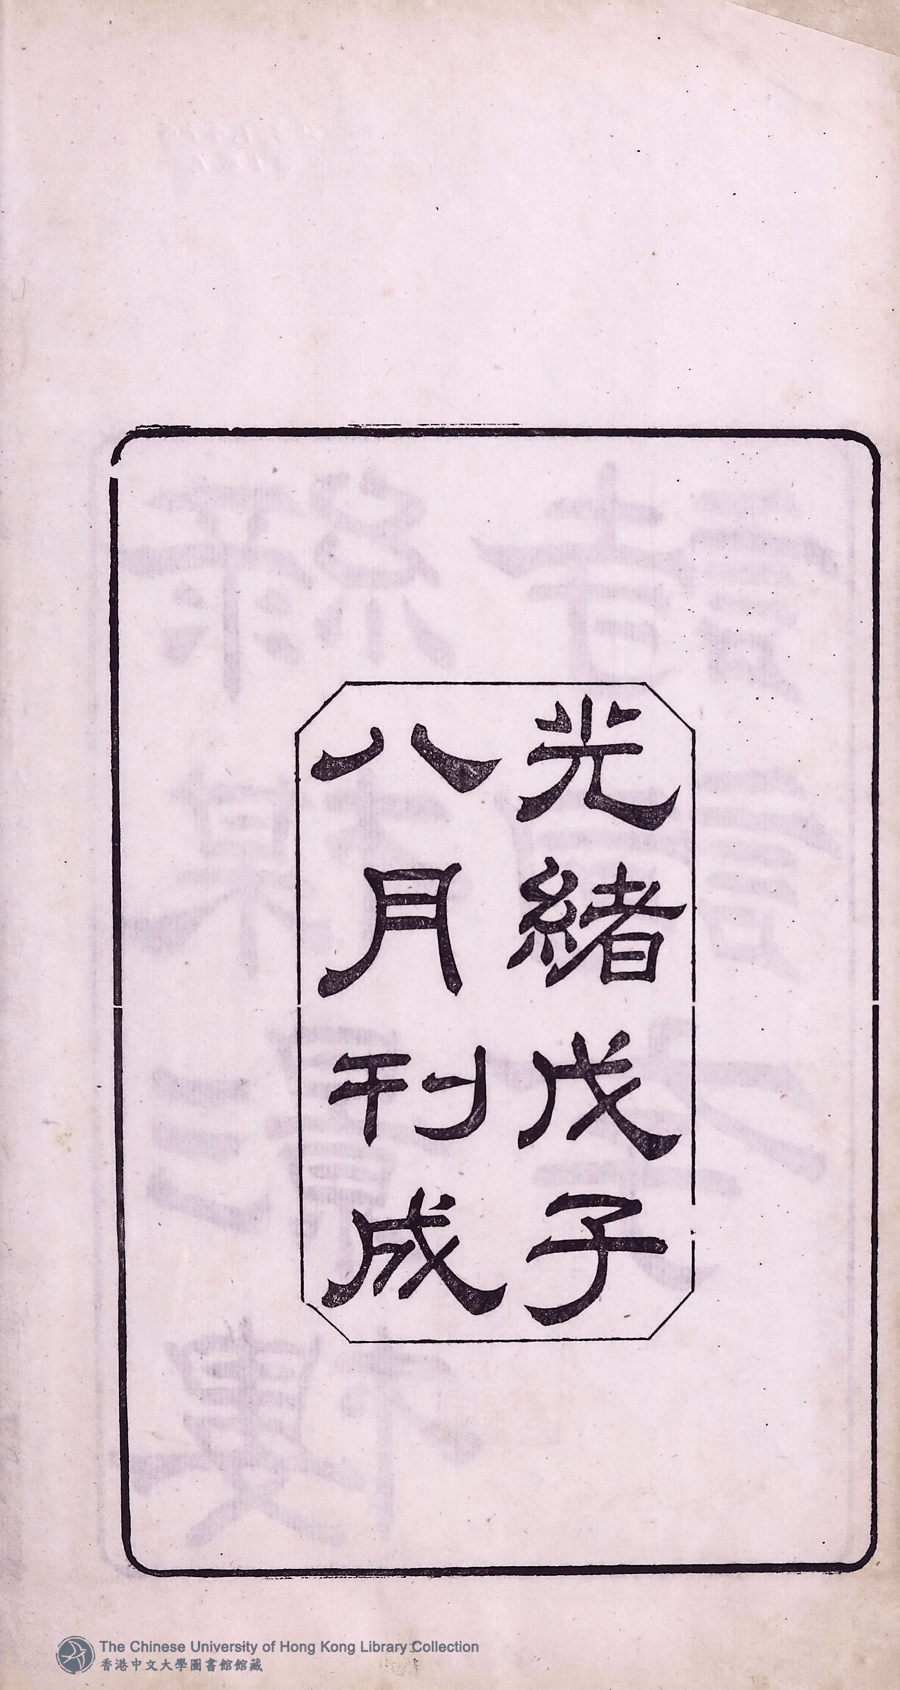 光緒戊子
八月刊成
The Chinese University of Hong Kong Library Collection
香港中文大學圖書館館藏